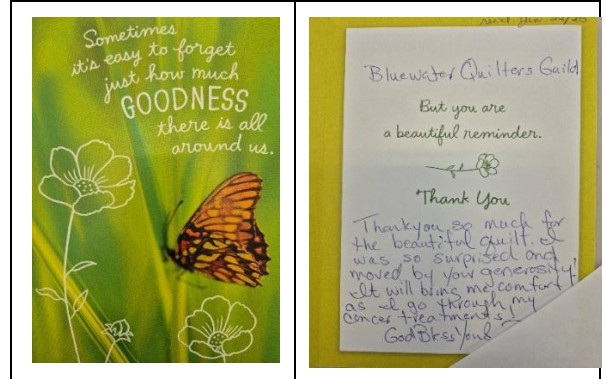 Sometimes
it's easy to forget
just how much
GOODNESS
there is all
around us.
Bluewater Quilters Guild
But you are
a beautiful reminder.
Thank You
Thankyou so much for
the beautiful quilt. I
was so surprised and
moved by your generosity!
It will bring me comfort
as I go through my
cancer treatments!
God Bless You